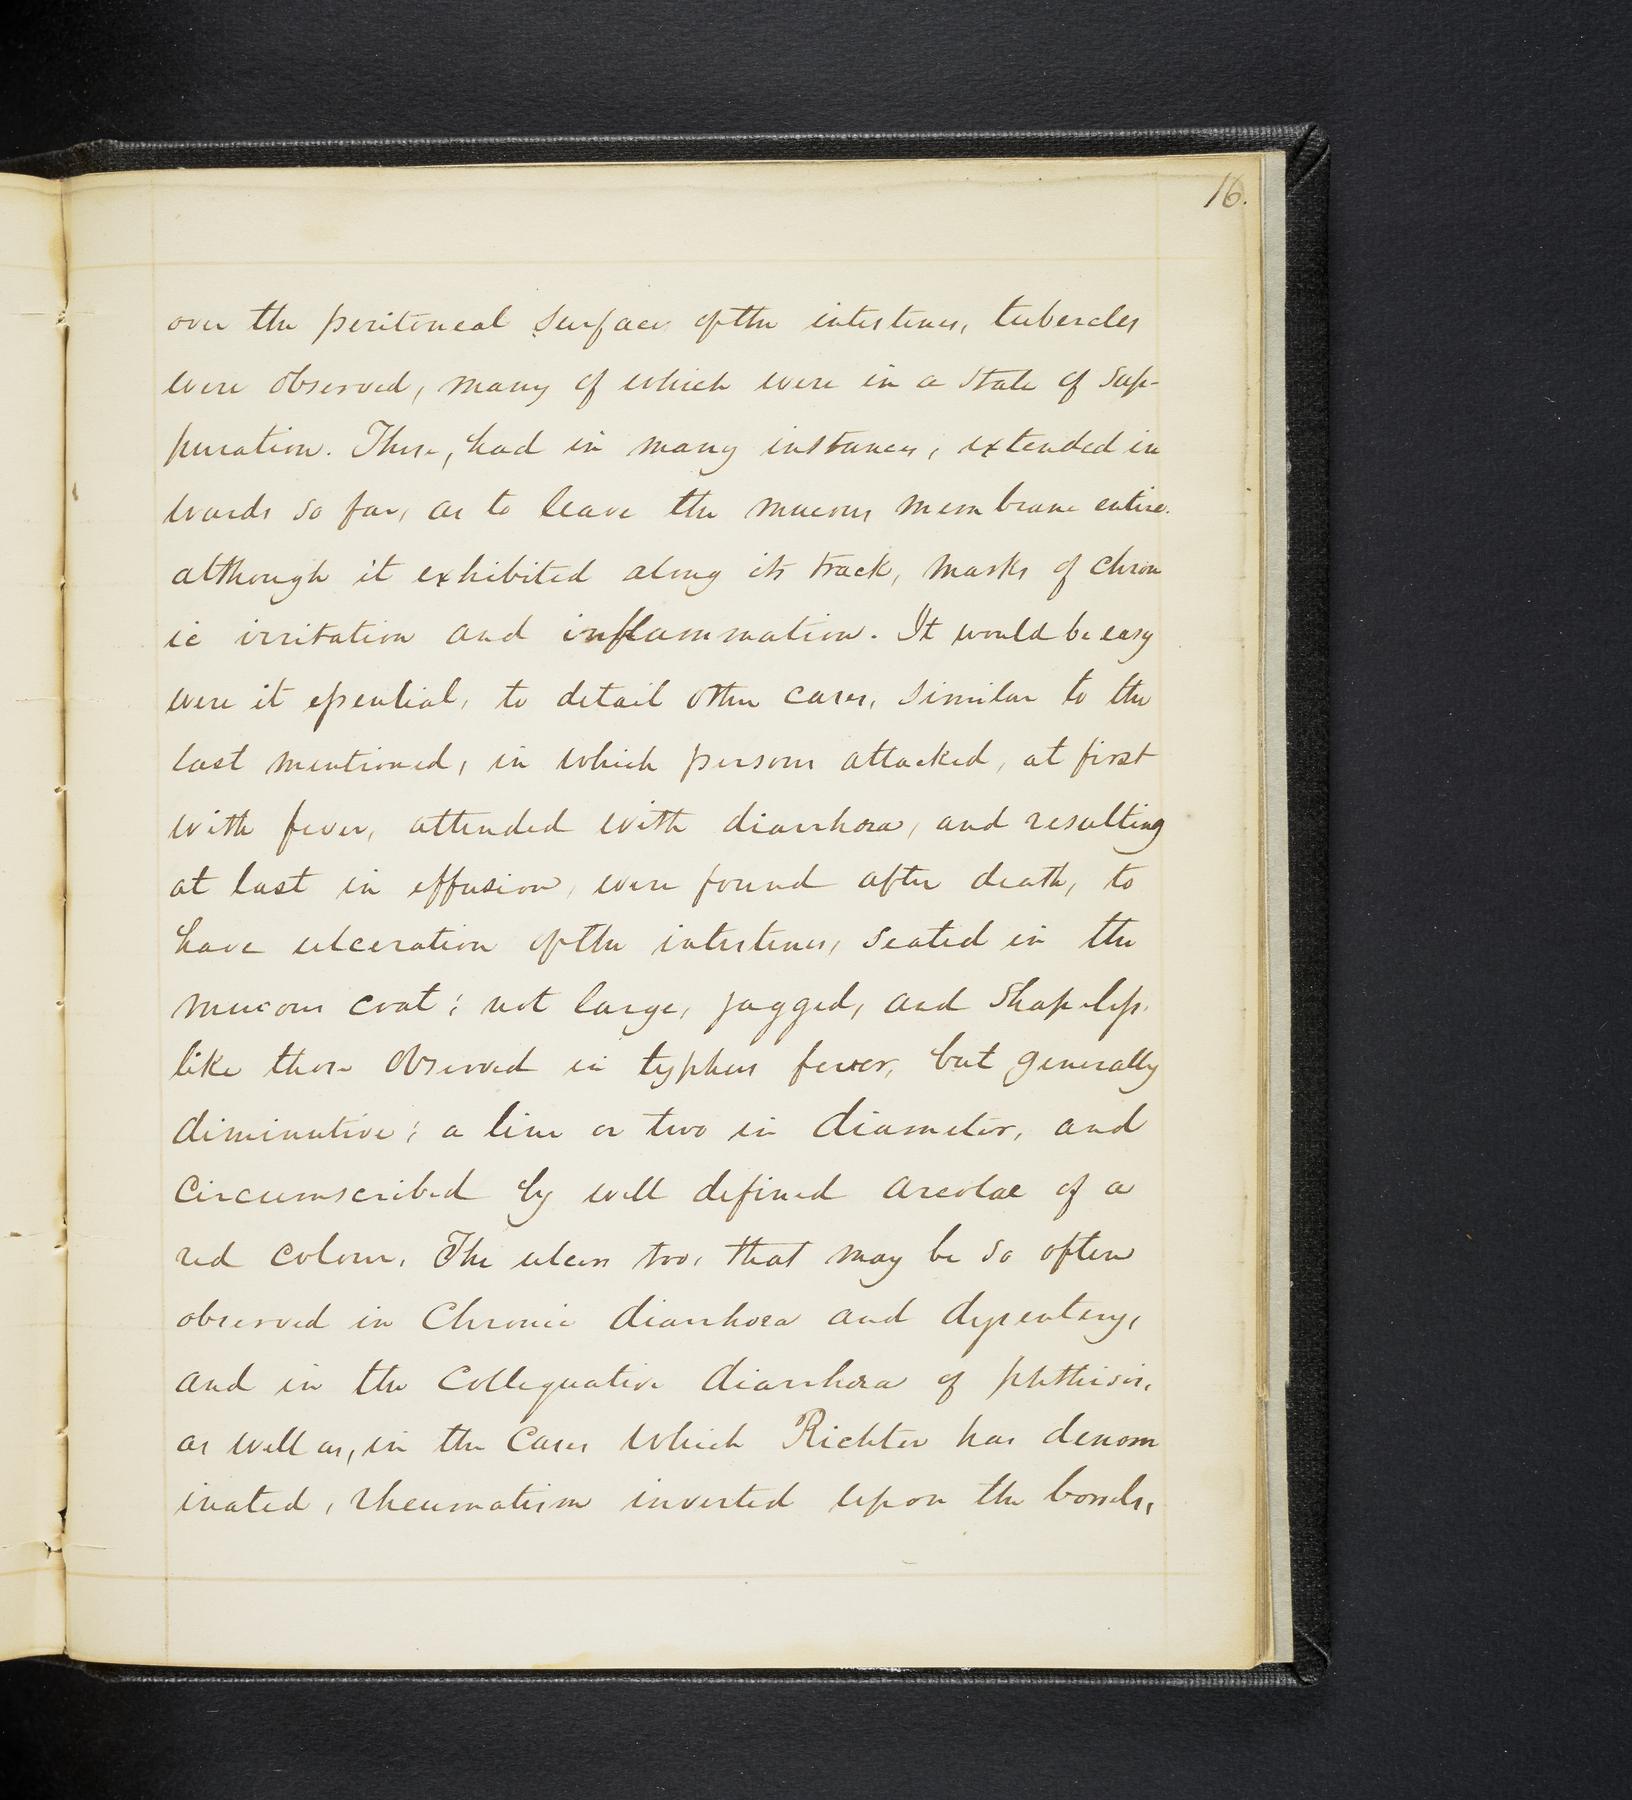 16.
over the peritoneal surface of the intestines, tubercles
were observed, many of which were in a state of sup-
puration. These, had in many instances, extended in
wards so far, as to leave the mucous membrane entire.
although it exhibited along its track, marks of chron
ic irritation and inflammation. It would be easy
were it essential, to detail other cases, similar to the
last mentioned, in which persons attacked, at first
with fever, attended with diarrhoea, and resulting
at last in effusion, were found after death, to
have ulceration of the intestines, seated in the
mucous coat; not large, jagged, and shapeless.
like those observed in typhus fever, but generally
diminutive; a line or two in diameter, and
circumscribed by well defined areolae of a
red colour. The ulcers too, that may be so often
observed in Chronic diarrhoea and dysentery,
and in the Colliquative diarrhoea of phthisis,
as well as, in the Cases which Richter has denom
inated, rheumatism inverted upon the bowels,